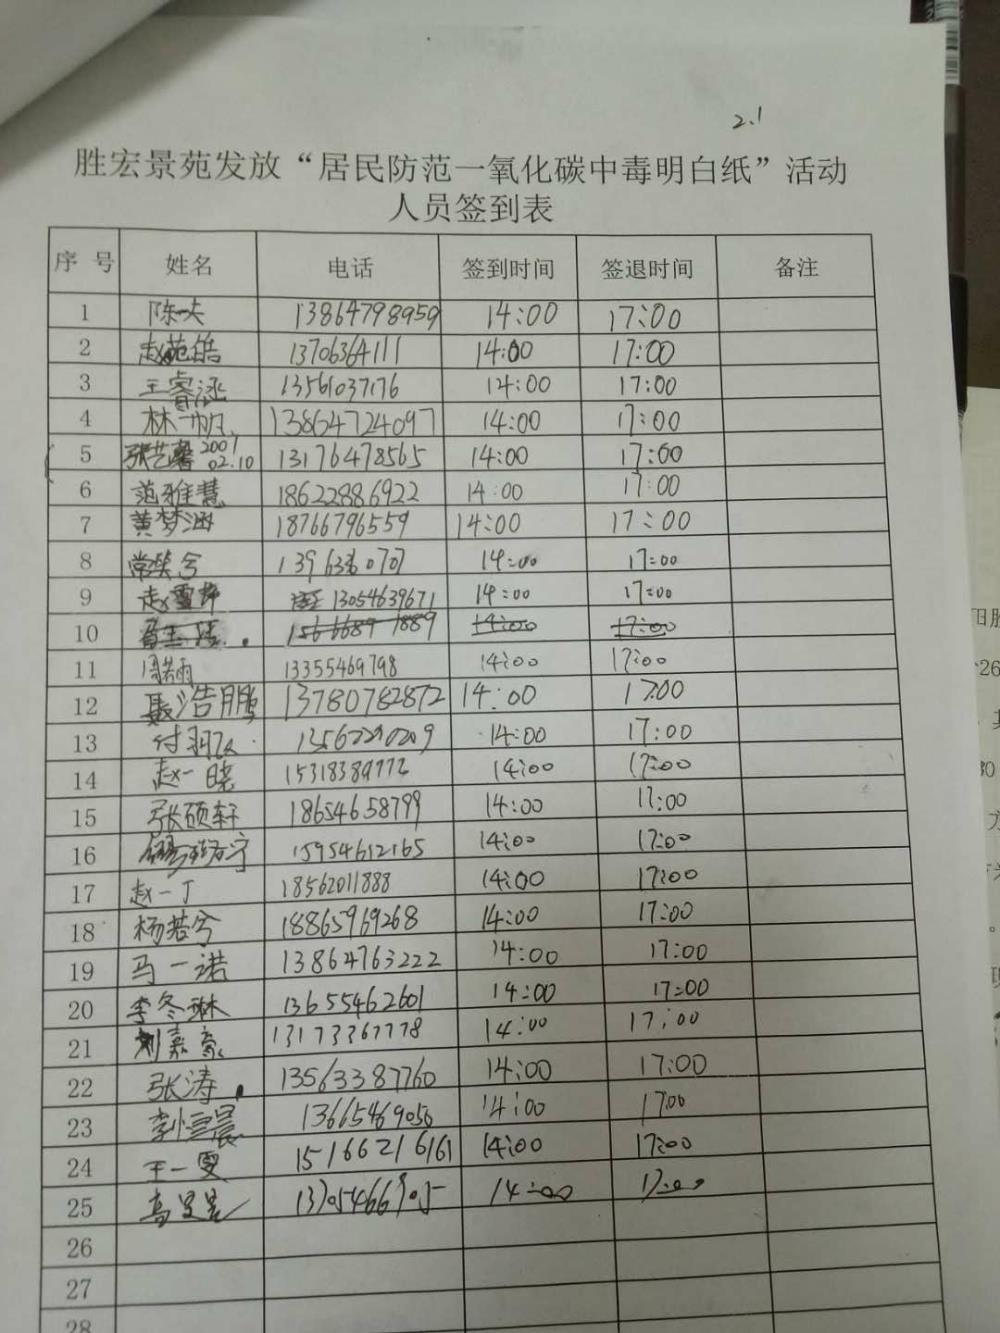 2.1
胜宏景苑发放“居民防范一氧化碳中毒明白纸”活动
人员签到表
序号 姓名 电话 签到时间 签退时间 备注
1 陈一夫 13864798959 14:00 17:00
2 赵苑皓 13706364111 14:00 17:00
3 王睿涵 13561037176 14:00 17:00
4 林一帆 13864724097 14:00 17:00
5 张艺馨 2001 02.10 13176478565 14:00 17:00
6 范雅慧 18622886922 14:00 17:00
7 黄梦涵 18766796559 14:00 17:00
8 常笑兮 14:00 17:00
9 赵雪婷 13054639671 14:00 17:00
10 14:00 17:00
11 周若雨 13355469798 14:00 17:00
12 聂浩鹏 13780782872 14:00 17:00
13 14:00 17:00
14 赵一晓 14:00 17:00
15 张硕轩 18654658799 14:00 17:00
16 15954612165 14:00 17:00
17 赵一丁 18562011888 14:00 17:00
18 杨若兮 18865969268 14:00 17:00
19 马一诺 13864763222 14:00 17:00
20 李冬琳 13655462601 14:00 17:00
21 刘嘉豪 13173367778 14:00 17:00
22 张涛 13563387760 14:00 17:00
23 13665469056 14:00 17:00
24 王一雯 15166216161 14:00 17:00
25 14:00 17:00
26
27
28